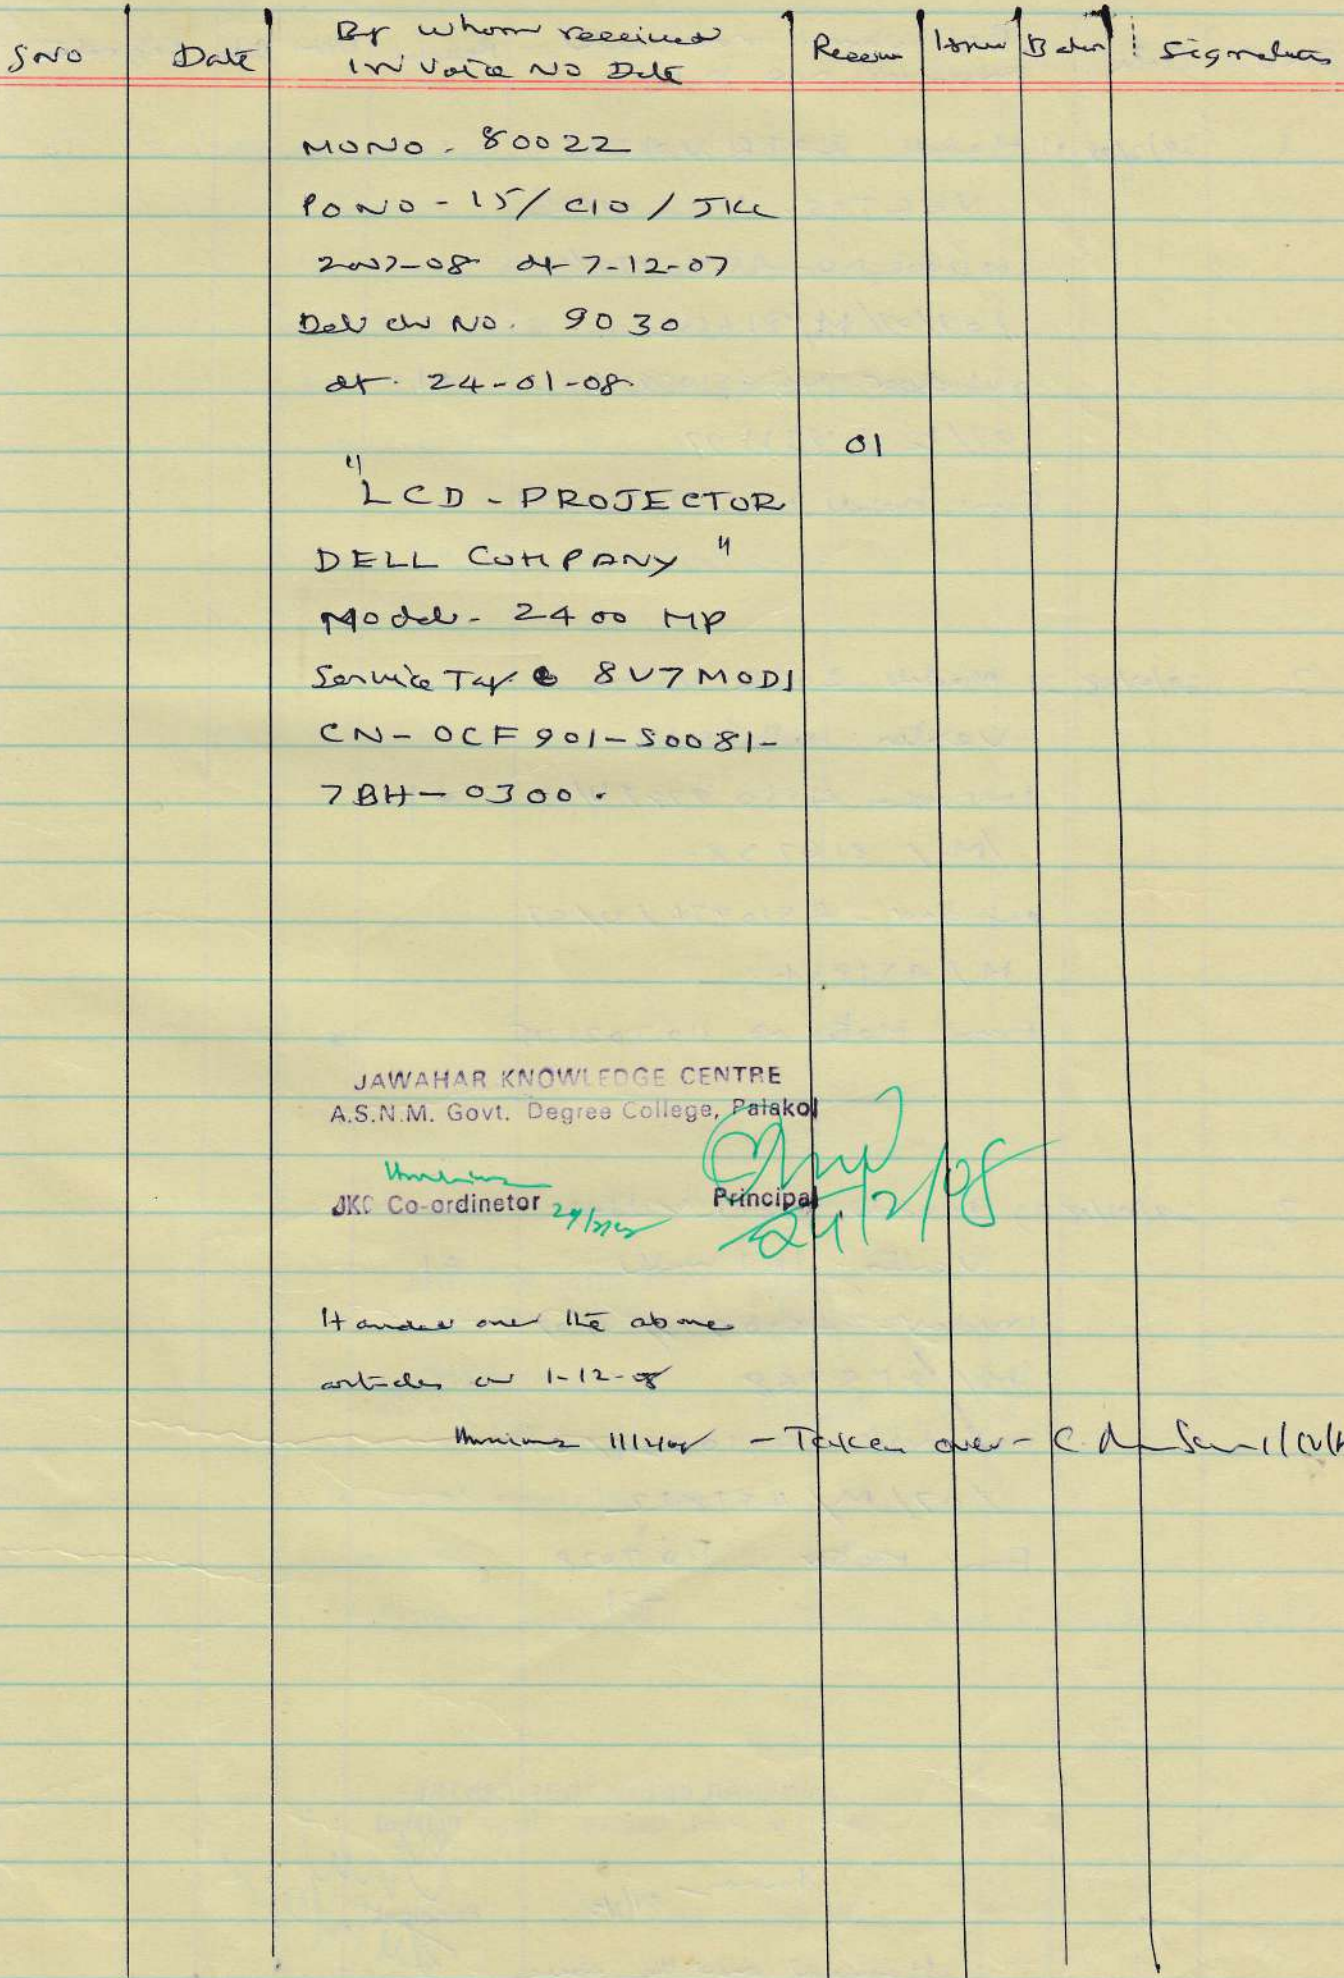 SNO Date By whom received Receive Issue Balan Signature
INVoice NO Date
MONO - 80022
PONO - 15/CIO/JKC
2007-08 dt 7-12-07
Del ch NO. 9030
dt. 24-01-08
01
"LCD - PROJECTOR
DELL COMPANY"
Model - 2400 MP
Service Tag 8V7MOD1
CN-OCF901-S0081-
7BH-0300.
JAWAHAR KNOWLEDGE CENTRE
A.S.N.M. Govt. Degree College, Palakol
JKC Co-ordinetor Principal
24/2/08
Handed over the above
articles on 1-12-08
- Taken over -